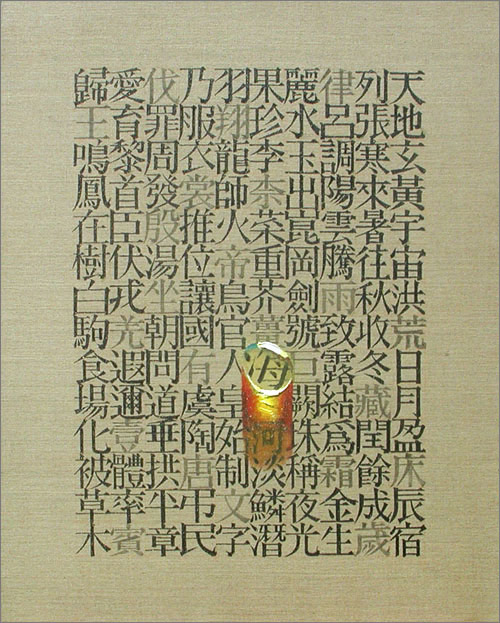 天地玄黃宇宙洪荒日月盈昃辰宿
列張寒來暑往秋收冬藏閏餘成歲
律呂調陽雲騰雨致露結爲霜金生
麗水玉出崑岡劍號巨闕珠稱夜光
果珍李柰菜重芥薑海河淡鱗潛
羽翔龍師火帝鳥官人皇始制文字
乃服衣裳推位讓國有虞陶唐弔民
伐罪周發殷湯坐朝問道垂拱平章
愛育黎首臣伏戎羌遐邇壹體率賓
歸王鳴鳳在樹白駒食場化被草木